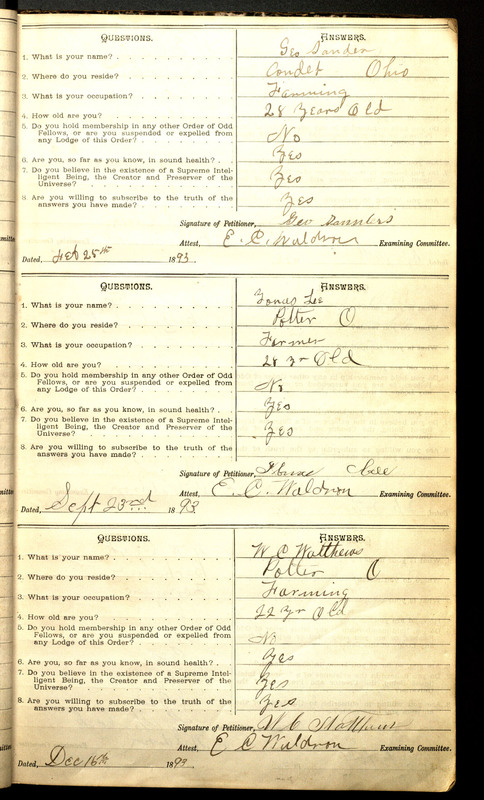 QUESTIONS. ANSWERS.
1. What is your name? Geo Sander
2. Where do you reside? Condit Ohio
3. What is your occupation? Farming
4. How old are you? 28 Years Old
5. Do you hold membership in any other Order of Odd
Fellows, or are you suspended or expelled from
any Lodge of this Order? No
6. Are you, so far as you know, in sound health? Yes
7. Do you believe in the existence of a Supreme Intel-
ligent Being, the Creator and Preserver of the
Universe? Yes
8. Are you willing to subscribe to the truth of the
answers you have made? Yes
Signature of Petitioner, Geo
Attest, E. C. Waldron Examining Committee.
Dated, Feb 25th 1893.
QUESTIONS. ANSWERS.
1. What is your name? Jonas Lee
2. Where do you reside? Potter O
3. What is your occupation? Farmer
4. How old are you? 28 Yr Old
5. Do you hold membership in any other Order of Odd
Fellows, or are you suspended or expelled from
any Lodge of this Order? No
6. Are you, so far as you know, in sound health? Yes
7. Do you believe in the existence of a Supreme Intel-
ligent Being, the Creator and Preserver of the
Universe? Yes
8. Are you willing to subscribe to the truth of the
answers you have made?
Signature of Petitioner,
Attest, E. C. Waldron Examining Committee.
Dated, Sept 23rd 1893
QUESTIONS. ANSWERS.
1. What is your name? W C Matthews
2. Where do you reside? Potter O
3. What is your occupation? Farming
4. How old are you? 22 yr Old
5. Do you hold membership in any other Order of Odd
Fellows, or are you suspended or expelled from
any Lodge of this Order? No
6. Are you, so far as you know, in sound health? Yes
7. Do you believe in the existence of a Supreme Intel-
ligent Being, the Creator and Preserver of the
Universe? Yes
8. Are you willing to subscribe to the truth of the
answers you have made? Yes
Signature of Petitioner, W C Matthews
Attest, E C Waldron Examining Committee.
Dated, Dec 16th 189